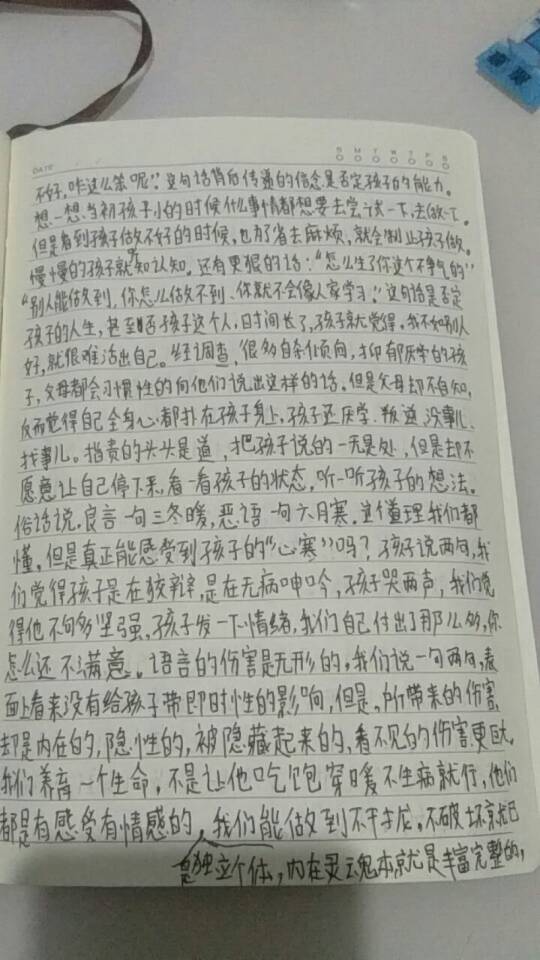 DATE
S M T W T F S
不好,咋这么笨呢”。这句话背后传递的信念是否定孩子的能力。
想一想,当初孩子小的时候什么事情都想要去尝试一下,去做一下。
但是看到孩子做不好的时候,也为了省去麻烦,就会制止孩子做。
慢慢的孩子就知认知。还有更狠的话:“怎么生了你这个不争气的”
“别人能做到,你怎么做不到、你就不会像人家学习”。这句话是否定
孩子的人生,甚至否孩子这个人,日时间长了,孩子就觉得,我不如别人
好,就很难活出自己。经调查,很多自杀倾向,抑郁厌学的孩
子,父母都会习惯性的向他们说出这样的话。但是父母却不自知,
反而觉得自己全身心都扑在孩子身上,孩子还厌学、叛逆、没事儿
找事儿。指责的头头是道,把孩子说的一无是处,但是却不
愿意让自己停下来,看一看孩子的状态,听一听孩子的想法。
俗话说,良言一句三冬暖,恶语一句六月寒。这个道理我们都
懂,但是真正能感受到孩子的“心寒”吗?孩子说两句,我
们觉得孩子是在狡辩,是在无病呻吟,孩子哭两声,我们觉
得他不够坚强,孩子发一下情绪,我们自己付出了那么多,你
怎么还不满意。语言的伤害是无形的,我们说一句两句,表
面上看来没有给孩子带即时性的影响,但是,所带来的伤害,
却是内在的,隐性的,被隐藏起来的,看不见的伤害更
我们养育一个生命,不是让他吃饱穿暖不生病就行,他们
都是有感受有情感的,我们能做到不干扰,不破坏就已
是独立个体,内在灵魂本就是丰富完整的,